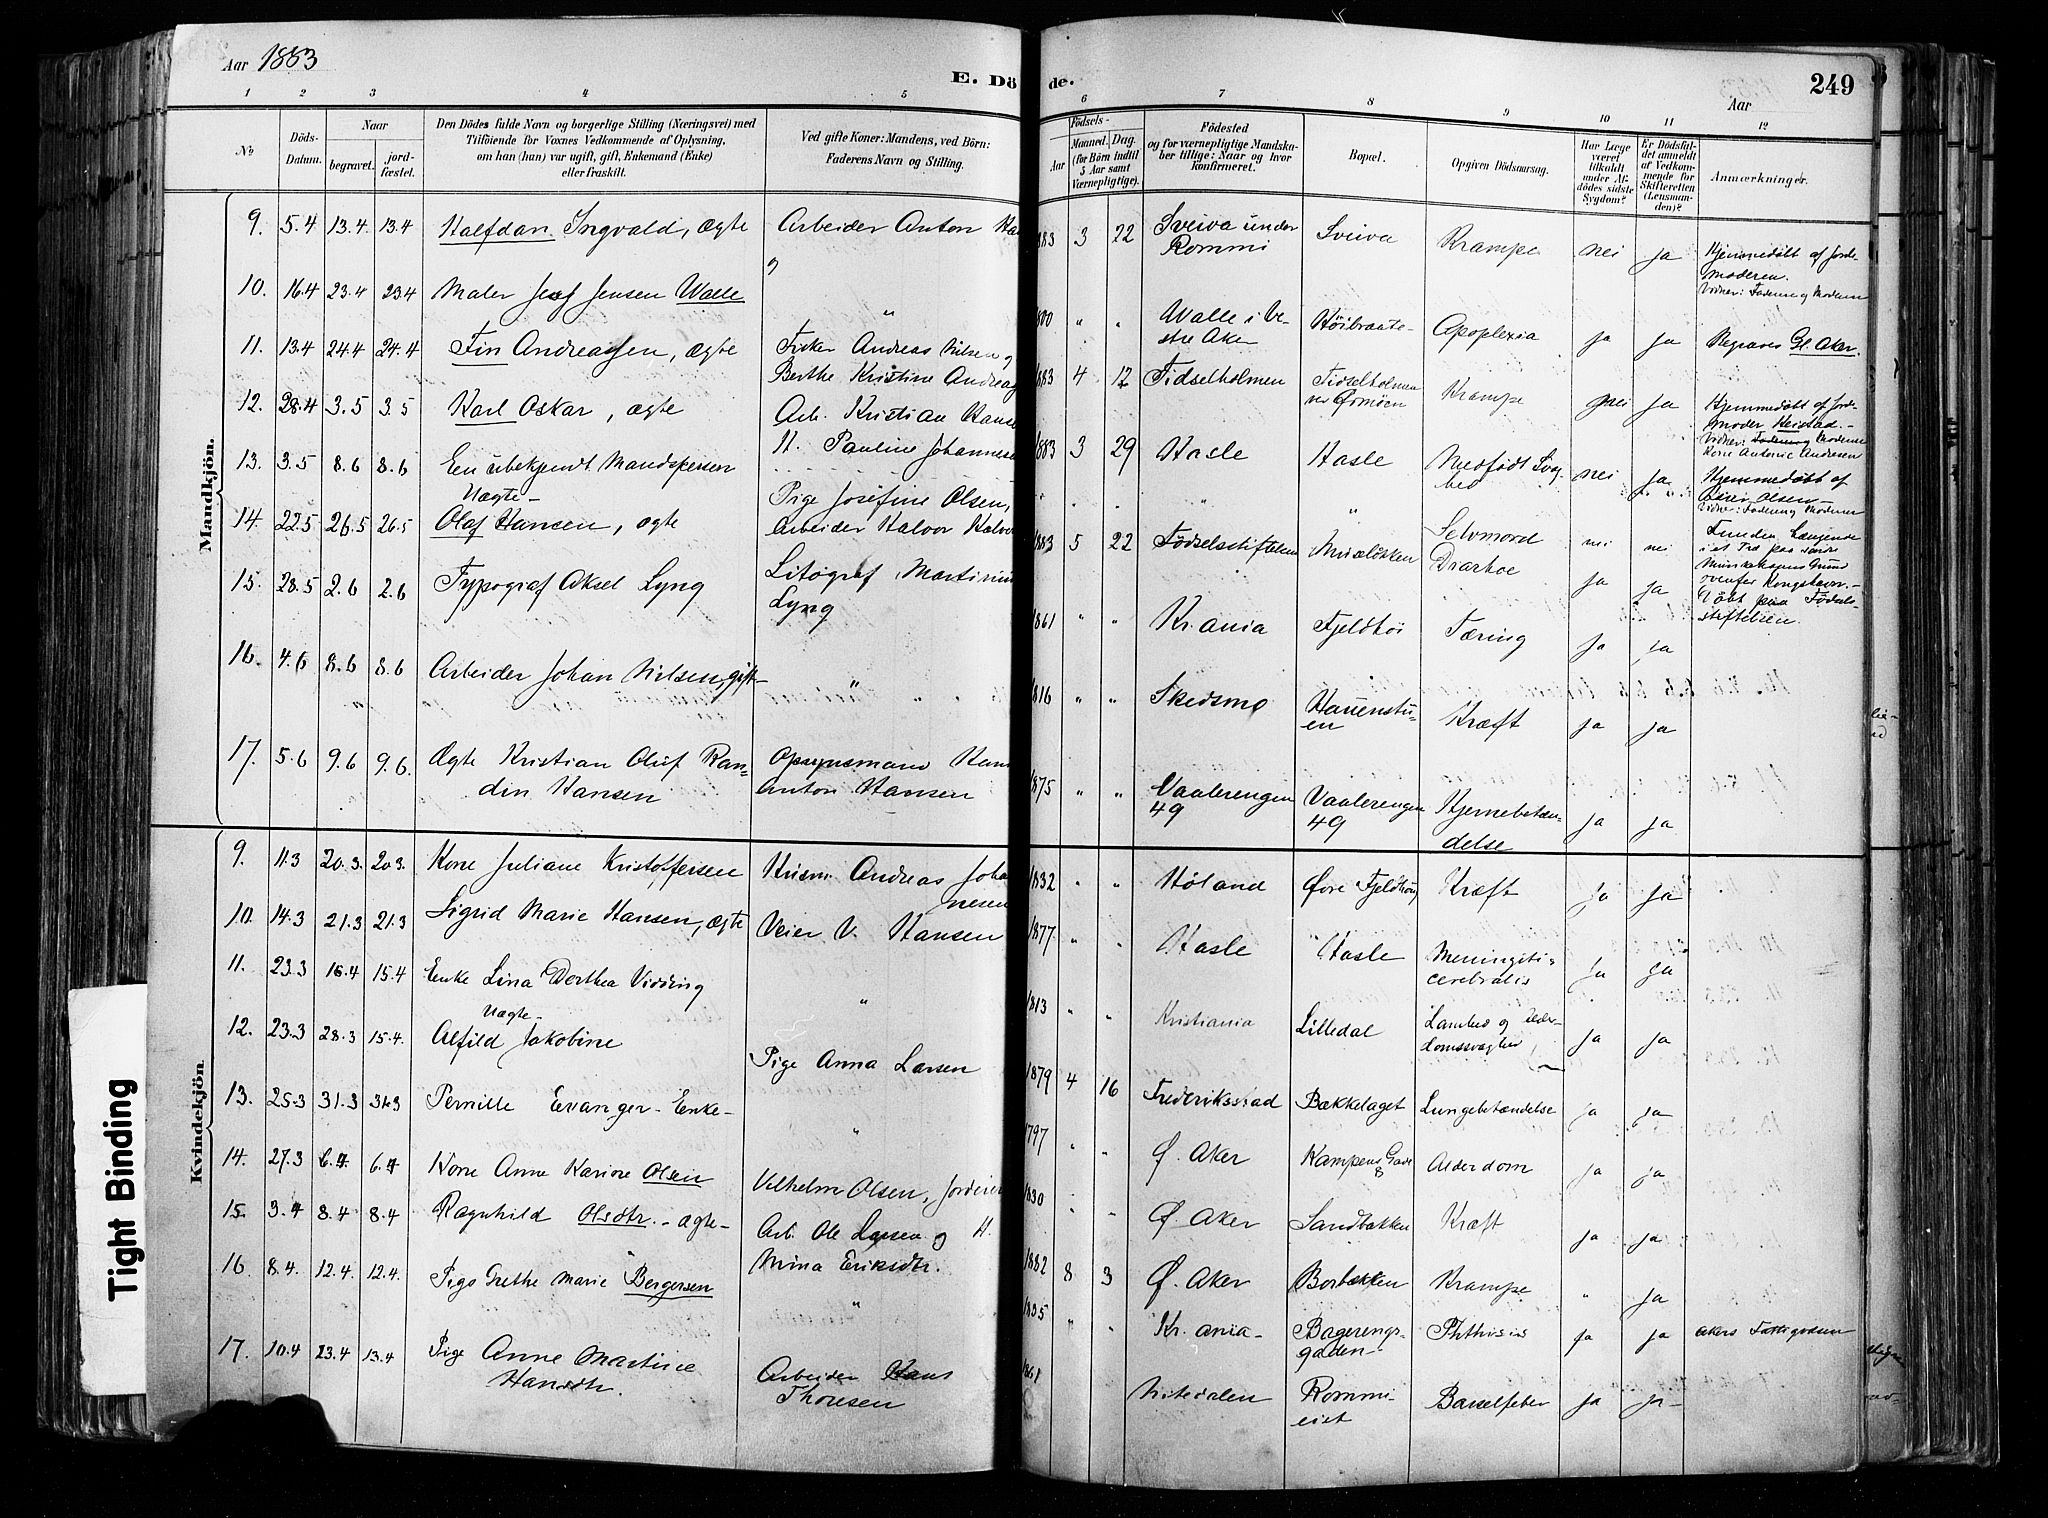 Aar 1883
E. Dö
de.
249
Aar
1 2 3 4 5
6 7 8 9 10 11 12
No
Döds-
Datum.
Naar
begravet.
jord-
fæstet.
Den Dödes fulde Navn og borgerlige Stilling (Næringsvei) med
Tilföiende för Voxnes Vedkommende af Oplysning,
om han (hun) var ugift, gift, Enkemand (Enke)
eller fraskilt.
Ved gifte Koner: Mandens, ved Börn:
Faderens Navn og Stilling.
Födsels-
Aar
Maaned. Dag.
(for Börn indtil
5 Aar samt
Værnepligtige).
Födested
og for værnepligtige Mandska-
ber tillige: Naar og hvor
konfirmeret.
Bopæl.
Opgiven Dödsaarsag.
Har Læge
været
tilkaldt
under Af-
dödes sidste
Sygdom?
Er Dödsfal-
det anmeldt
af Vedkom-
mende for
Skifteretten
(Lensman-
den)?
Anmærkninger.
Mandkjön.
9. 5.4 13.4. 13.4 Halfdan Ingvald, ægte Arbeider Anton
883 3 22 Sveiva under
Rommi Sveiva Krampe nei ja Hjemmedøbt af Jorde-
moderen.
Vidner: Faderen og Moderen
10. 16.4 23.4 23.4 Maler Jensen Walle "
800 " " Walle i Ve-
stre Aker Høibraate- Apoplexia ja ja Begraves Gl. Aker.
11. 13.4 24.4 24.4 Fin Andreassen, ægte Fisker Andreas Nilsen og
Berthe Kristine
883 4 12 Fidselholmen Fidselholmen
ved Ormøen Krampe nei ja Hjemmedøbt af Jorde-
moder Keistad.-
Vidner: Moderen
Kone Antonie Andersen
12. 28.4 3.5 3.5 Karl Oskar, ægte Arb. Kristian
H. Pauline
1883 3 29 Hasle Hasle Medfødt Svag-
hed nei ja Hjemmedøbt af
Olsen-
Vidner: Faderen og Moderen
13. 3.5 8.6 8.6 En ubekjendt Mandsperson
" " Selvmord nei nei Funden hængende
i et Træ paa
ovenfor Kongshavn.-
Uægte-
14. 22.5 26.5 26.5 Olaf Hansen, ægte Pige Josefine Olsen,
Arbeider Halvor
883 5 22 Fødselsstiftelsen Munkeløkken Diarhoe ja ja Døbt paa Fødsels-
stiftelsen.
15. 28.5 2.6 2.6 Typograf Aksel Lyng Litograf
Lyng
1861 " " Kr.ania Fjeldhøi Tæring ja ja
16. 4.6 8.6 8.6 Arbeider Johan Nilsen, gift- "
1816 " " Skedsmo Hauenstu-
en Kræft ja ja
17. 5.6 9.6 9.6. Ægte Kristian Oluf Ran-
din Hansen Opsynsmand
Anton Hansen
1875 " " Vaalerengen
49 Vaalerengen
49 Hjernebetæn-
delse ja ja
Kvindekjön
9. 11.3 20.3. 20.3. Kone Juliane Kristoffersen Husm. Andreas Joha
nesen
1832 " " Høland Øvre Kræft ja ja
10. 14.3 21.3 21.3 Sigrid Marie Hansen, ægte Veier V. Hansen
1877 " " Hasle Hasle Meningitis
cerebralis ja ja
11. 23.3 16.4 15.4 Enke Lina Dorthea Vidding "
1813 " " Kristiania Lilledal Lamhed og Alder-
domssvaghed ja ja
Uægte-
12. 23.3 28.3 15.4. Alfild Jakobine Pige Anna Larsen
1879 4 16 Frederiksstad Bækkelaget Lungebetændelse ja ja
13. 25.3 31.3 31.3 Pernille Evanger- Enke- "
1797 " " Ø. Aker Kampens Gade
8 Alderdom ja ja
14. 27.3 6.4 6.4 Kone Anne Karine Olsen Vilhelm Olsen, Jordeier
1830 " " Ø. Aker Sandbakken Kræft ja ja
15. 3.4 8.4 8.4 Ragnhild Olsdtr.- ægte- Arb. Ole Larsen og H.
Mina Eriksdtr.
1882 8 3 Ø. Aker Borbækken Krampe " ja
16. 8.4. 12.4. 12.4. Pige Grethe Marie Bergersen "
1835 " " Kr.ania- Bagerengs-
gaden- Phthisis ja ja Akers Fattigvæsen
17. 10.4 23.4 13.4 Pige Anne Martine
Hansdtr. Arbeider Hans
Thoresen
1861 Nitedalen Rommi-
eiet Barselfeber ja ja
Tight Binding